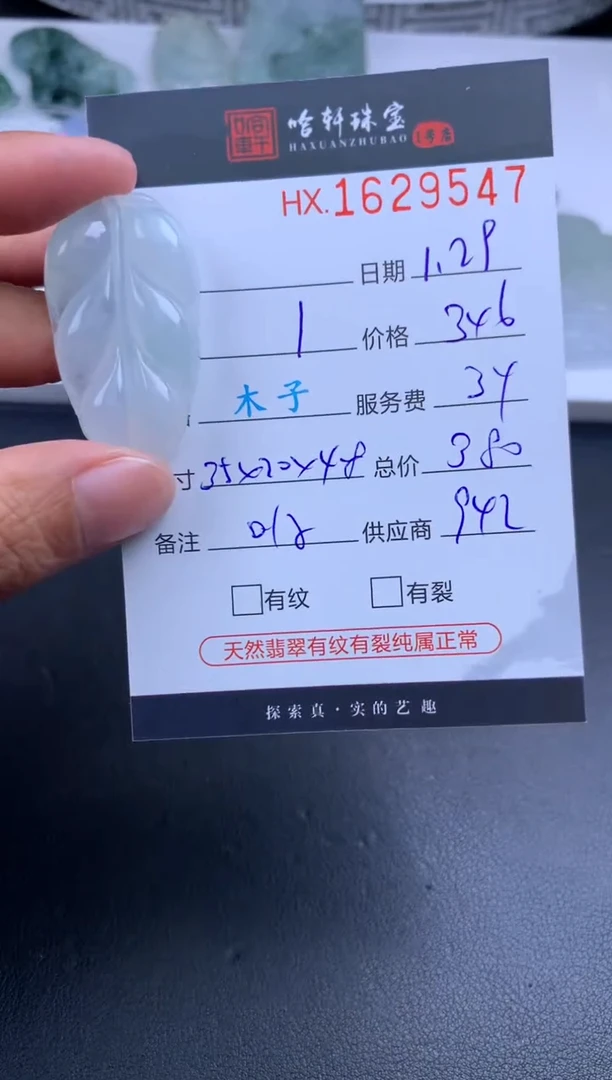 哈轩珠宝 1号店
HAXUANZHUBAO
HX.1629547
日期 1.29
1 价格 346
木子 服务费 34
寸 35x20x48 总价 380
备注 供应商 942
有纹 有裂
天然翡翠有纹有裂纯属正常
探索真·实的艺趣